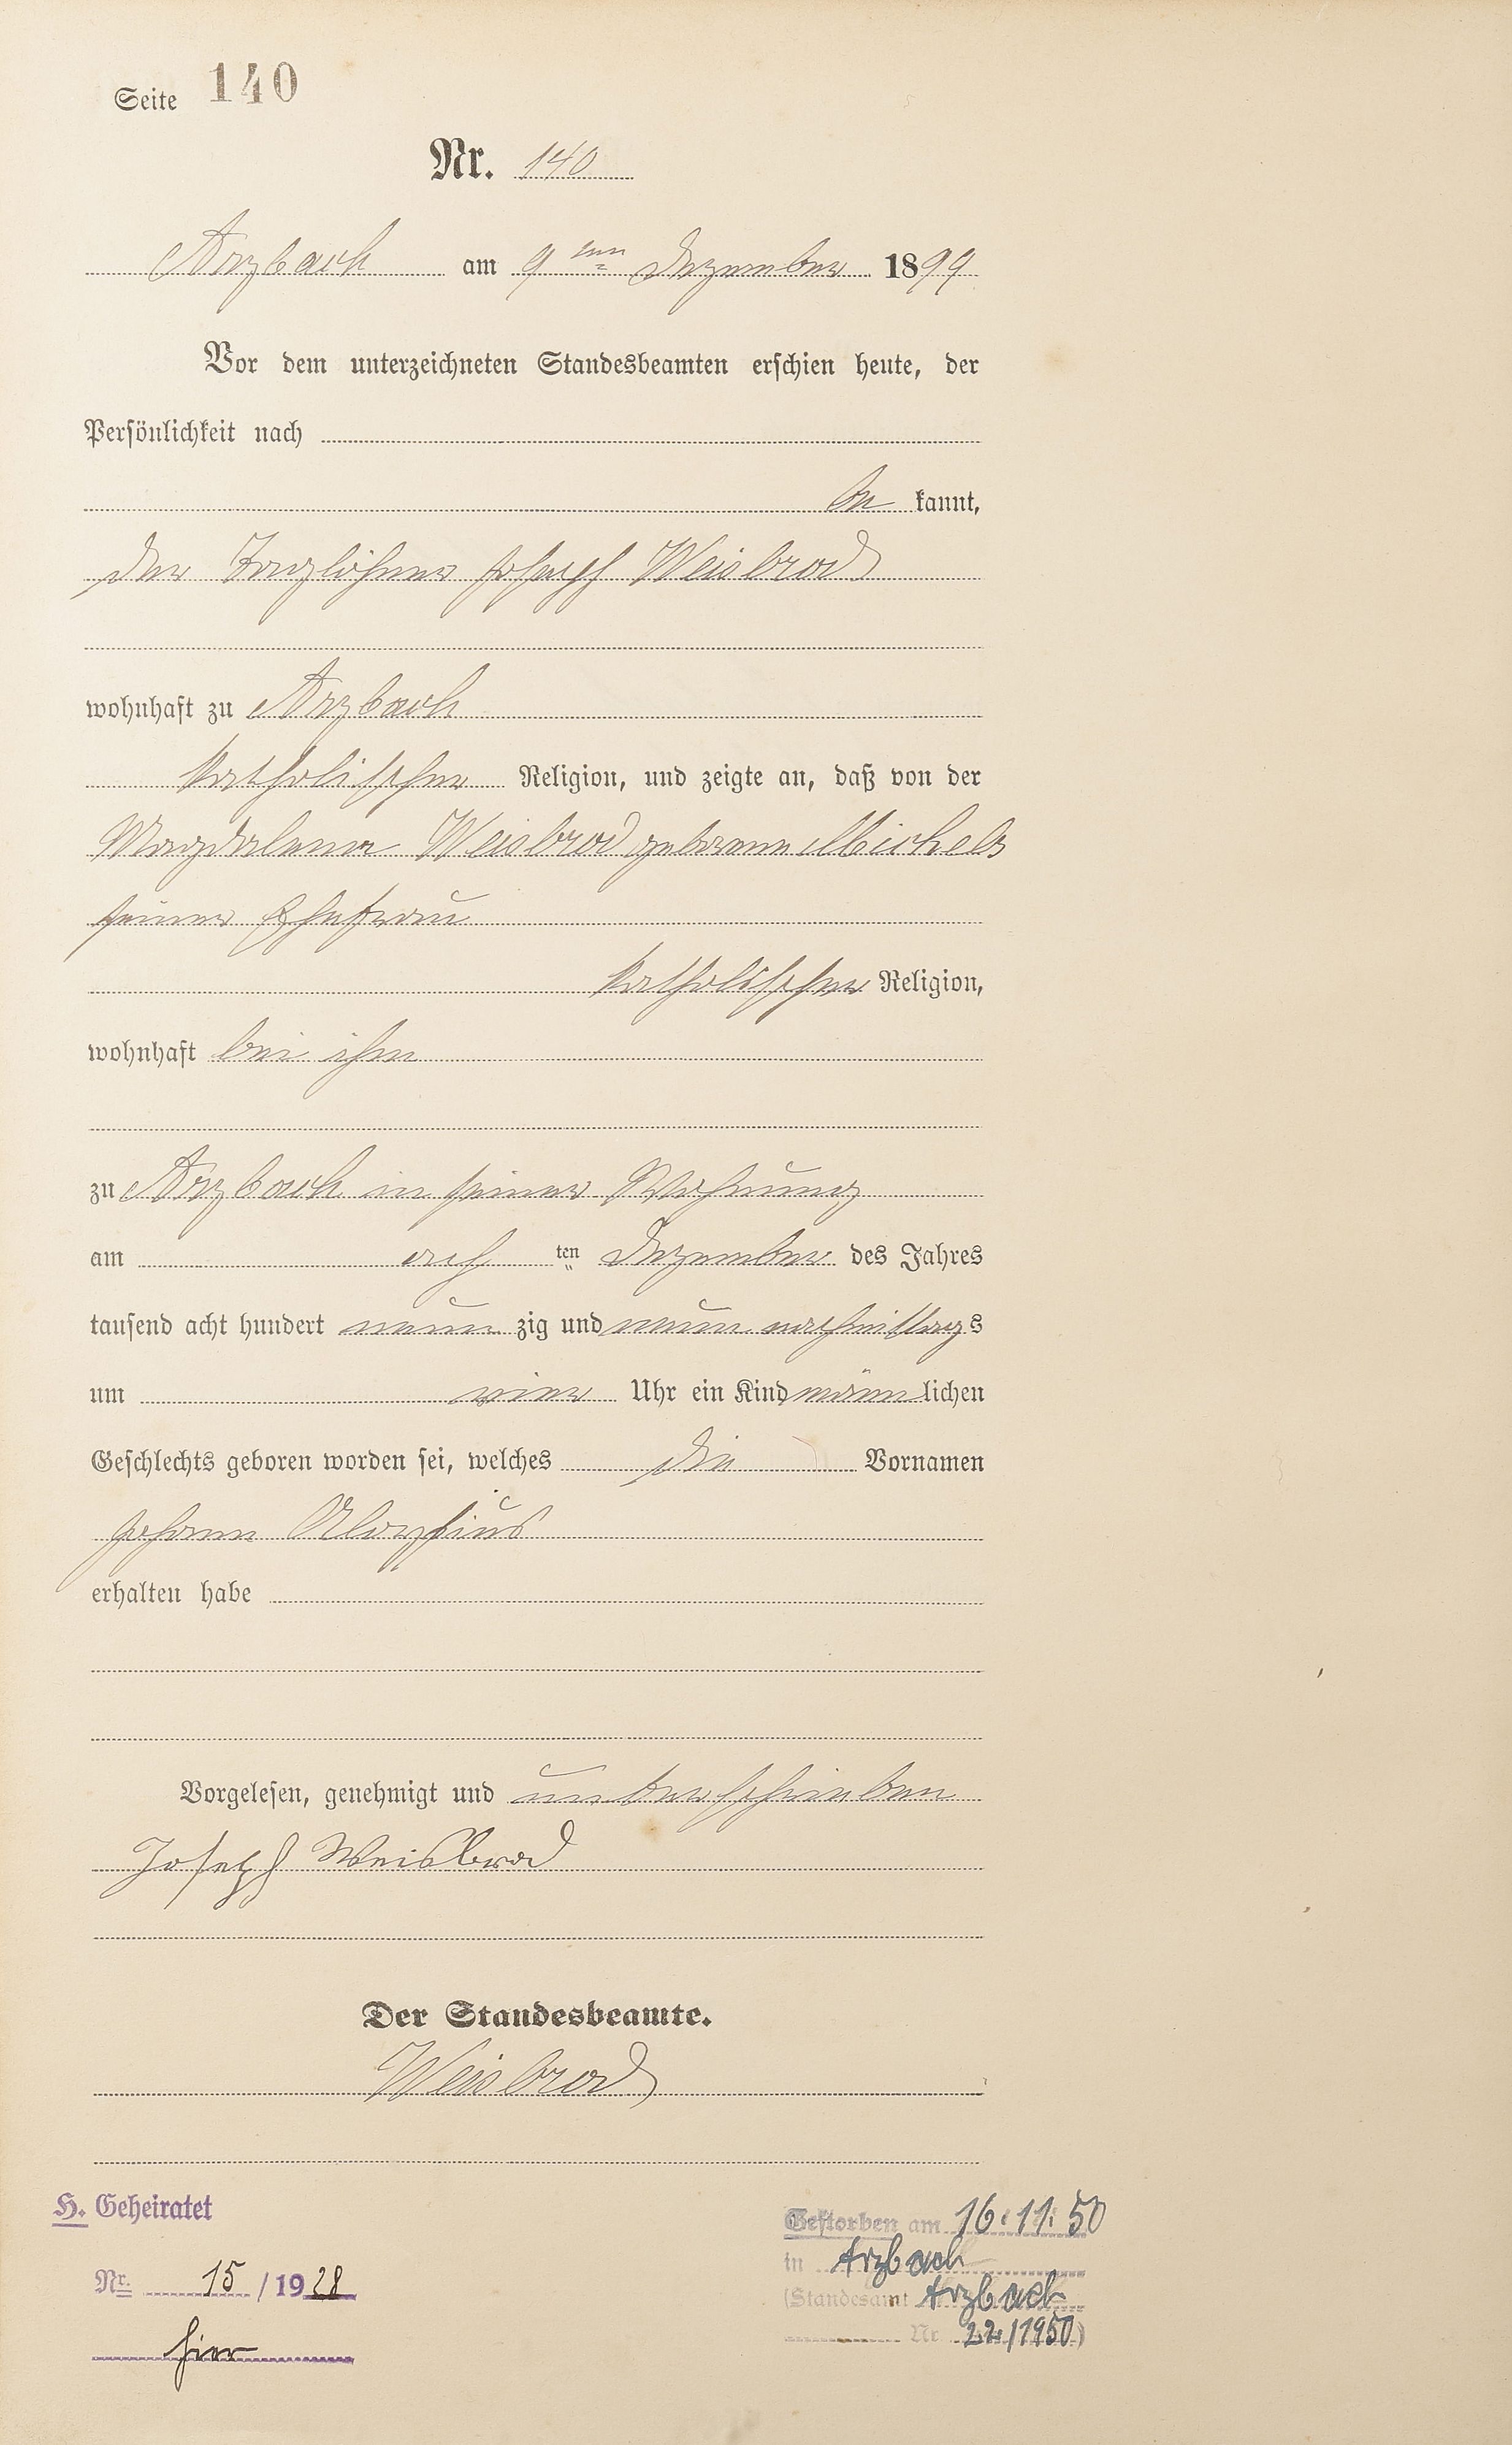 Seite 140
Nr. 140
Arzbach am 9ten Dezember 1899
Vor dem unterzeichneten Standesbeamten erschien heute, der
Persönlichkeit nach
be kannt,
der Taglöhner Joseph Weisbrod
wohnhaft zu Arzbach
katholischer Religion, und zeigte an, daß von der
Magdalena Weisbrod geborene Michels
seiner Ehefrau
katholischer Religion,
wohnhaft bei ihm
zu Arzbach in seiner Wohnung
am acht ten Dezember des Jahres
tausend acht hundert neun zig und neun nachmittags
um vier Uhr ein Kind männ lichen
Geschlechts geboren worden sei, welches die Vornamen
Johann Aloysius
erhalten habe
Vorgelesen, genehmigt und unterschrieben
Joseph Weisbrod
Der Standesbeamte.
Weisbrod
H. Geheiratet
Nr. 15 / 1928
hier
Gestorben am 16.11.50
in Arzbach
(Standesamt Arzbach
Nr. 22/1950)